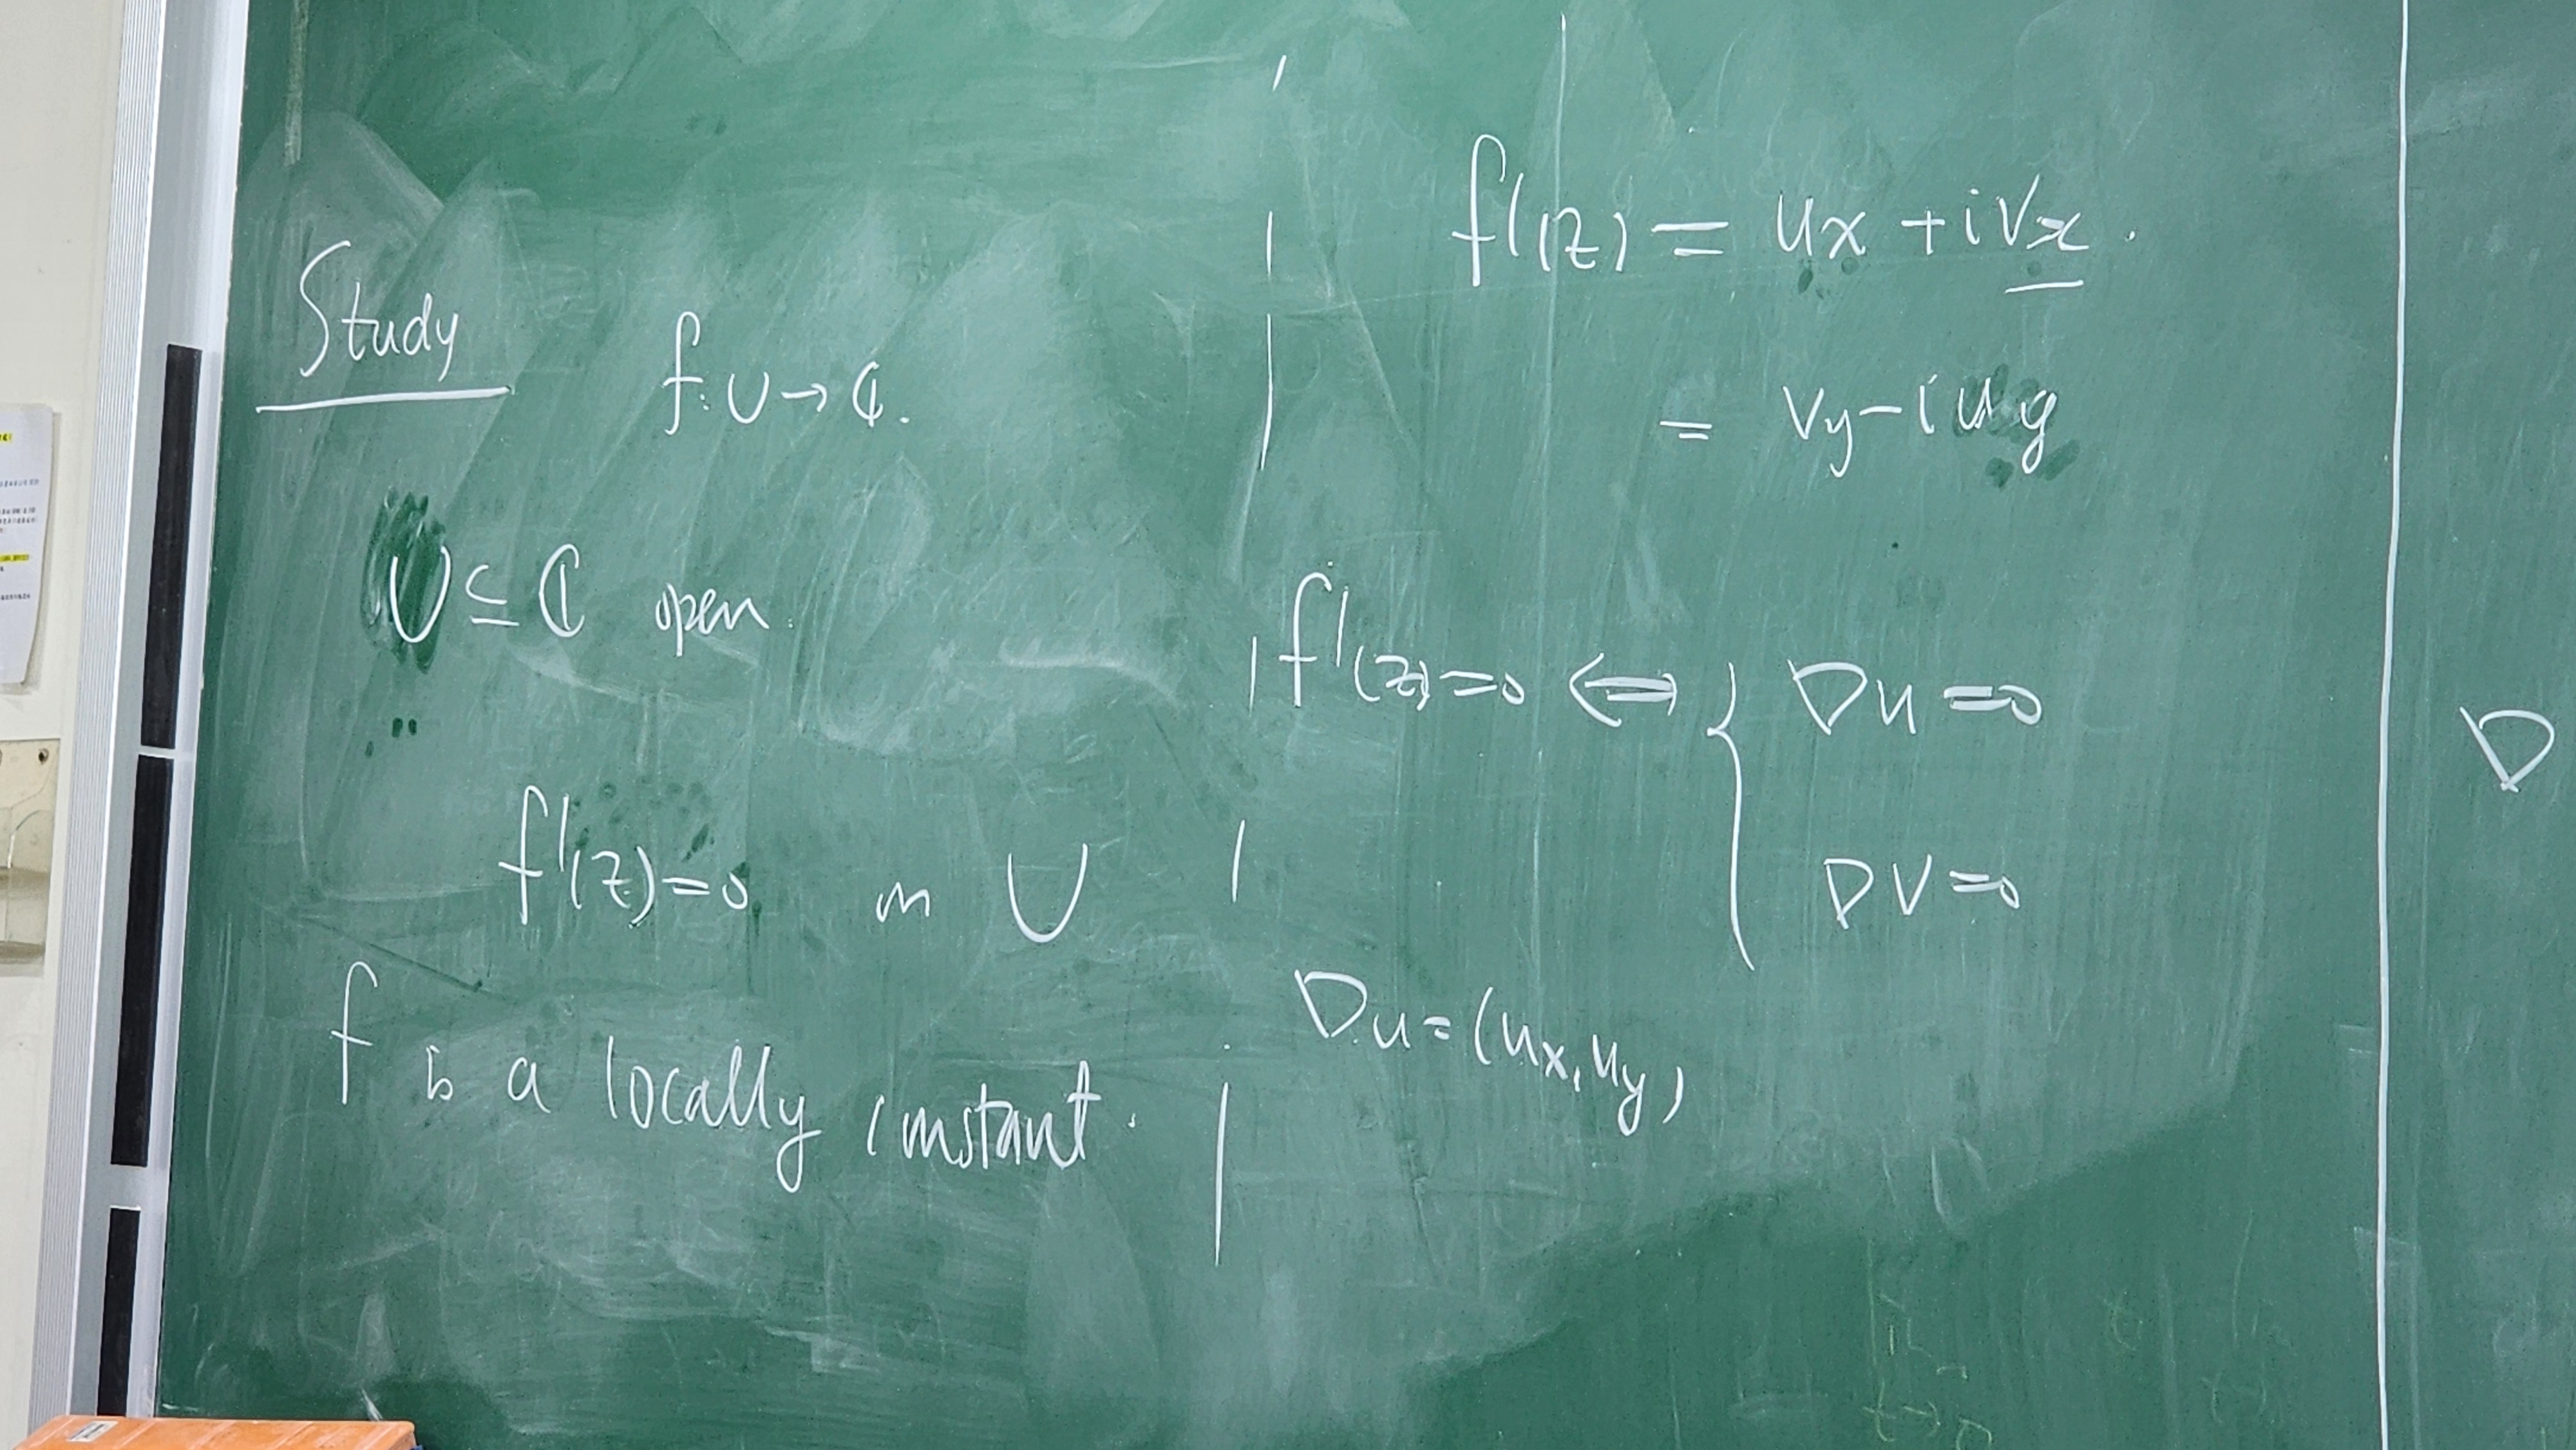 Study
f: U → ℂ.
U ⊆ ℂ open.
f'(z)=0 in U
f is a locally constant.
f'(z) = ux + ivx.
= vy - iuy
f'(z)=0 ⟺ { ∇u=0
∇v=0
∇u=(ux,uy)
∇